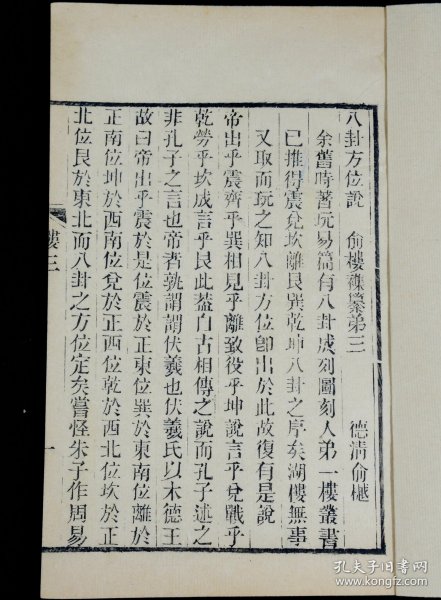 八卦方位說　俞樓襍纂弟三　德清俞樾
余舊時著玩易篇有八卦成列圖刻入弟一樓叢書
已推得震兌坎離艮巽乾坤八卦之序矣湖樓無事
又取而玩之知八卦方位卽出於此故復有是說
帝出乎震齊乎巽相見乎離致役乎坤說言乎兌戰乎
乾勞乎坎成言乎艮此葢自古相傳之說而孔子述之
非孔子之言也帝者孰謂謂伏羲也伏羲氏以木德王
故曰帝出乎震於是位震於正東位巽於東南位離於
正南位坤於西南位兌於正西位乾於西北位坎於正
北位艮於東北而八卦之方位定矣嘗怪朱子作周易
樓三
一
孔夫子旧书网
www.kongfz.com